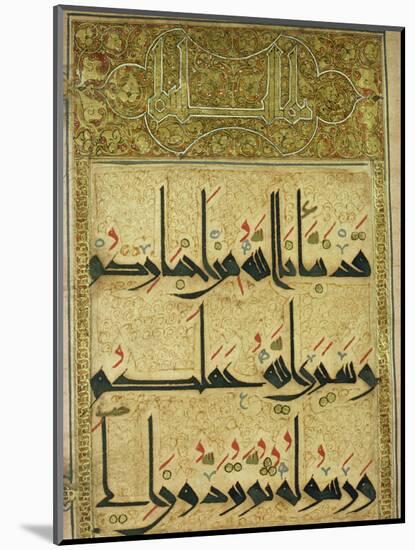 قد نبأنا الله من اخباركم
وسيرى الله عملكم
ورسوله ثم تردون إلى